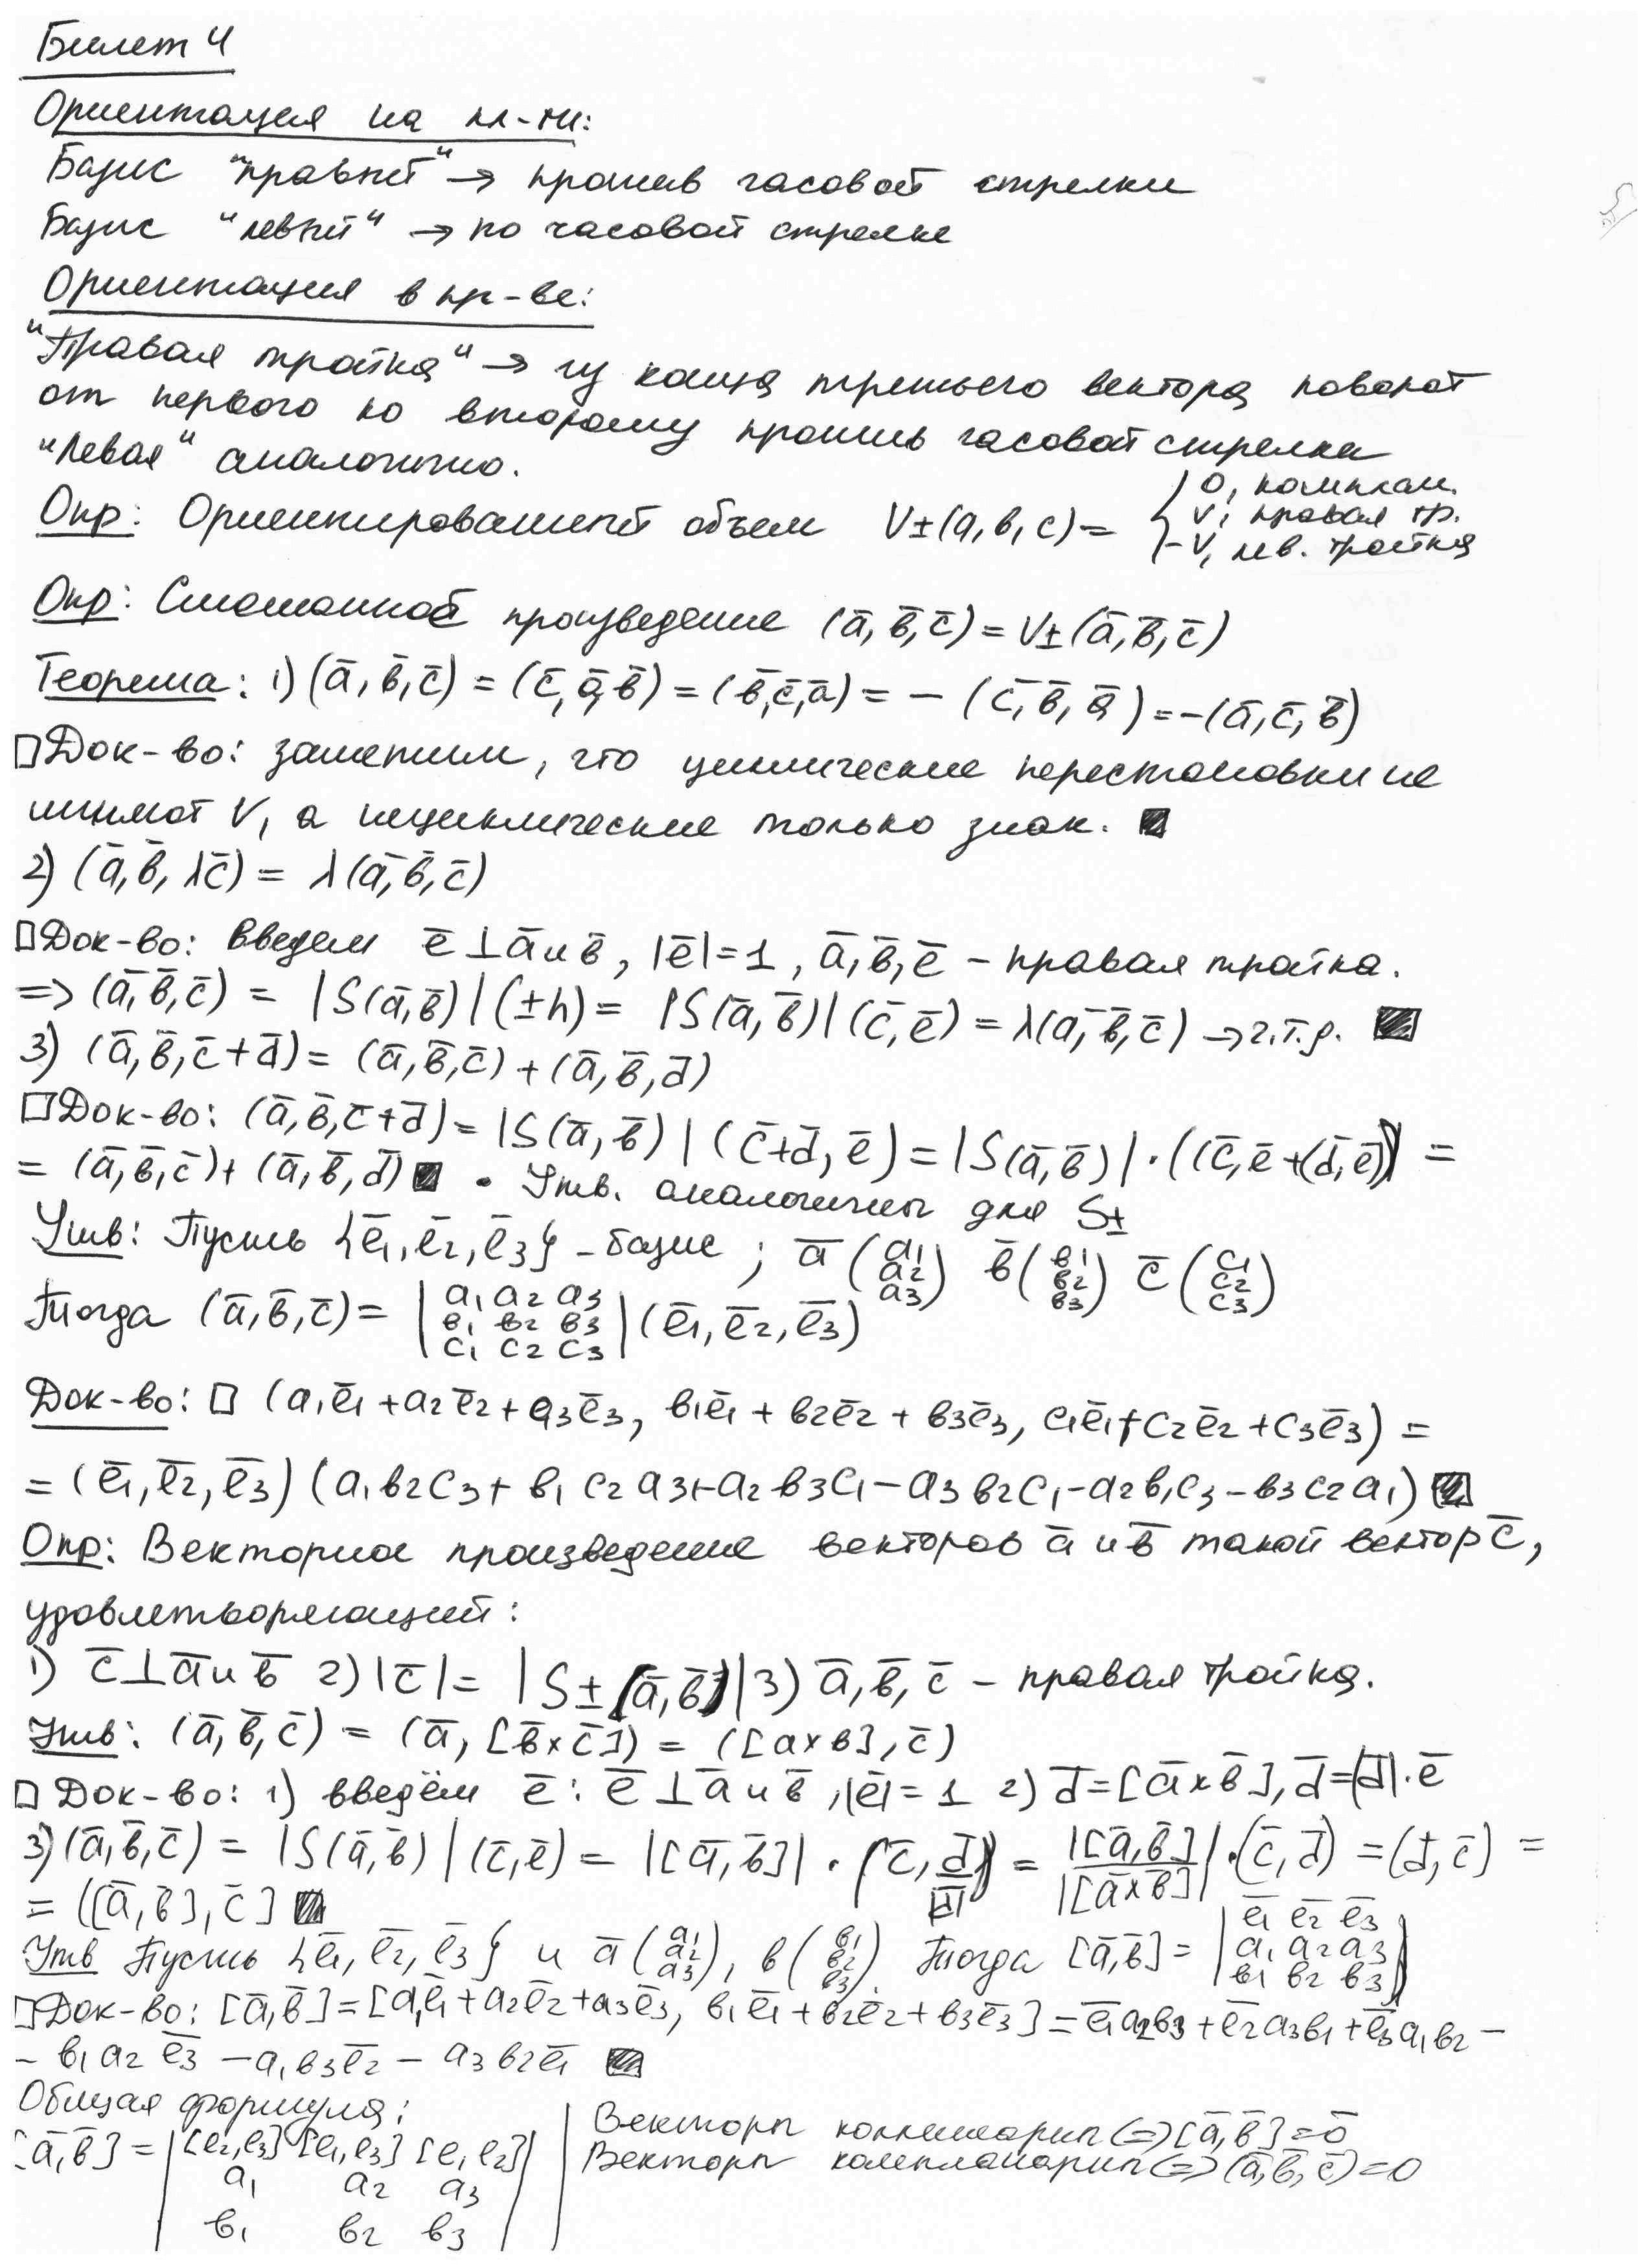 Билет 4
Ориентация на пл-ти:
Базис "правый" → против часовой стрелки
Базис "левый" → по часовой стрелке
Ориентация в пр-ве:
"Правая тройка" → из конца третьего вектора поворот
от первого ко второму против часовой стрелки
"Левая" аналогично.
Опр: Ориентированный объем V±(a, в, c) = { 0, комплан. V, правая тр. -V, лев. тройка
Опр: Смешанное произведение (a̅, в̅, c̅) = V±(a̅, в̅, c̅)
Теорема: 1) (a̅, в̅, c̅) = (c̅, a̅, в̅) = (в̅, c̅, a̅) = - (c̅, в̅, a̅) = -(a̅, c̅, в̅)
□ Док-во: заметим, что циклические перестановки не
меняют V, а нециклические только знак. ■
2) (a̅, в̅, λc̅) = λ(a̅, в̅, c̅)
□ Док-во: введем e̅ ⊥ a̅ и в̅, |e̅| = 1, a̅, в̅, e̅ - правая тройка.
=> (a̅, в̅, c̅) = |S(a̅, в̅)| (±h) = |S(a̅, в̅)| (c̅, e̅) = λ(a̅, в̅, c̅) → ч.т.д. ■
3) (a̅, в̅, c̅+d̅) = (a̅, в̅, c̅) + (a̅, в̅, d̅)
□ Док-во: (a̅, в̅, c̅+d̅) = |S(a̅, в̅)| (c̅+d̅, e̅) = |S(a̅, в̅)| · ((c̅, e̅ + (d̅, e̅)) =
= (a̅, в̅, c̅) + (a̅, в̅, d̅) ■ • Утв. аналогичны для S±
Утв: Пусть {e̅1, e̅2, e̅3} - базис; a̅ (a1 a2 a3) в̅ (в1 в2 в3) c̅ (c1 c2 c3)
Тогда (a̅, в̅, c̅) = | a1 a2 a3 в1 в2 в3 c1 c2 c3 | (e̅1, e̅2, e̅3)
Док-во: □ (a1e̅1 + a2e̅2 + a3e̅3, в1e̅1 + в2e̅2 + в3e̅3, c1e̅1 + c2e̅2 + c3e̅3) =
= (e̅1, e̅2, e̅3) (a1в2c3 + в1c2a3 + a2в3c1 - a3в2c1 - a2в1c3 - в3c2a1) ■
Опр: Векторное произведение векторов a̅ и в̅ такой вектор c̅,
удовлетворяющий:
1) c̅ ⊥ a̅ и в̅ 2) |c̅| = |S±(a̅, в̅)| 3) a̅, в̅, c̅ - правая тройка.
Утв: (a̅, в̅, c̅) = (a̅, [в̅×c̅]) = ([a×в], c̅)
□ Док-во: 1) введём e̅: e̅ ⊥ a̅ и в̅, |e̅| = 1 2) d̅ = [a̅×в̅], d̅ = |d̅|·e̅
3) (a̅, в̅, c̅) = |S(a̅, в̅)| (c̅, e̅) = |[a̅, в̅]| · (c̅, d̅/|d̅|) = |[a̅, в̅]|/|[a̅×в̅]| · (c̅, d̅) = (d̅, c̅) =
= ([a̅, в̅], c̅] ■
Утв Пусть {e̅1, e̅2, e̅3} и a̅ (a1 a2 a3), в (в1 в2 в3). Тогда [a̅, в̅] = | e̅1 e̅2 e̅3 a1 a2 a3 в1 в2 в3 |
□ Док-во: [a̅, в̅] = [a1e̅1 + a2e̅2 + a3e̅3, в1e̅1 + в2e̅2 + в3e̅3] = e̅1a2в3 + e̅2a3в1 + e̅3a1в2 -
- в1a2e̅3 - a1в3e̅2 - a3в2e̅1 ■
Общая формула:
[a̅, в̅] = | [e2, e3] [e1, e3] [e1 e2]
a1 a2 a3
в1 в2 в3 |
Векторы коллинеарны <=> [a̅, в̅] = 0̅
Векторы компланарны <=> (a̅, в̅, c̅) = 0